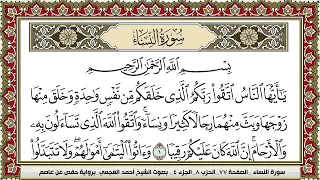 سُورَةُ النِّسَاءِ
بِسْمِ اللَّهِ الرَّحْمَٰنِ الرَّحِيمِ
يَٰٓأَيُّهَا ٱلنَّاسُ ٱتَّقُوا۟ رَبَّكُمُ ٱلَّذِى خَلَقَكُم مِّن نَّفْسٍ وَٰحِدَةٍ وَخَلَقَ مِنْهَا
زَوْجَهَا وَبَثَّ مِنْهُمَا رِجَالًا كَثِيرًا وَنِسَآءً ۚ وَٱتَّقُوا۟ ٱللَّهَ ٱلَّذِى تَسَآءَلُونَ بِهِۦ
وَٱلْأَرْحَامَ ۚ إِنَّ ٱللَّهَ كَانَ عَلَيْكُمْ رَقِيبًا ١ وَءَاتُوا۟ ٱلْيَتَٰمَىٰٓ أَمْوَٰلَهُمْ ۖ وَلَا تَتَبَدَّلُوا۟
سورة النساء . الصفحة ٧٧ . الحزب ٨ . الجزء ٤ . بصوت الشيخ أحمد العجمي . برواية حفص عن عاصم